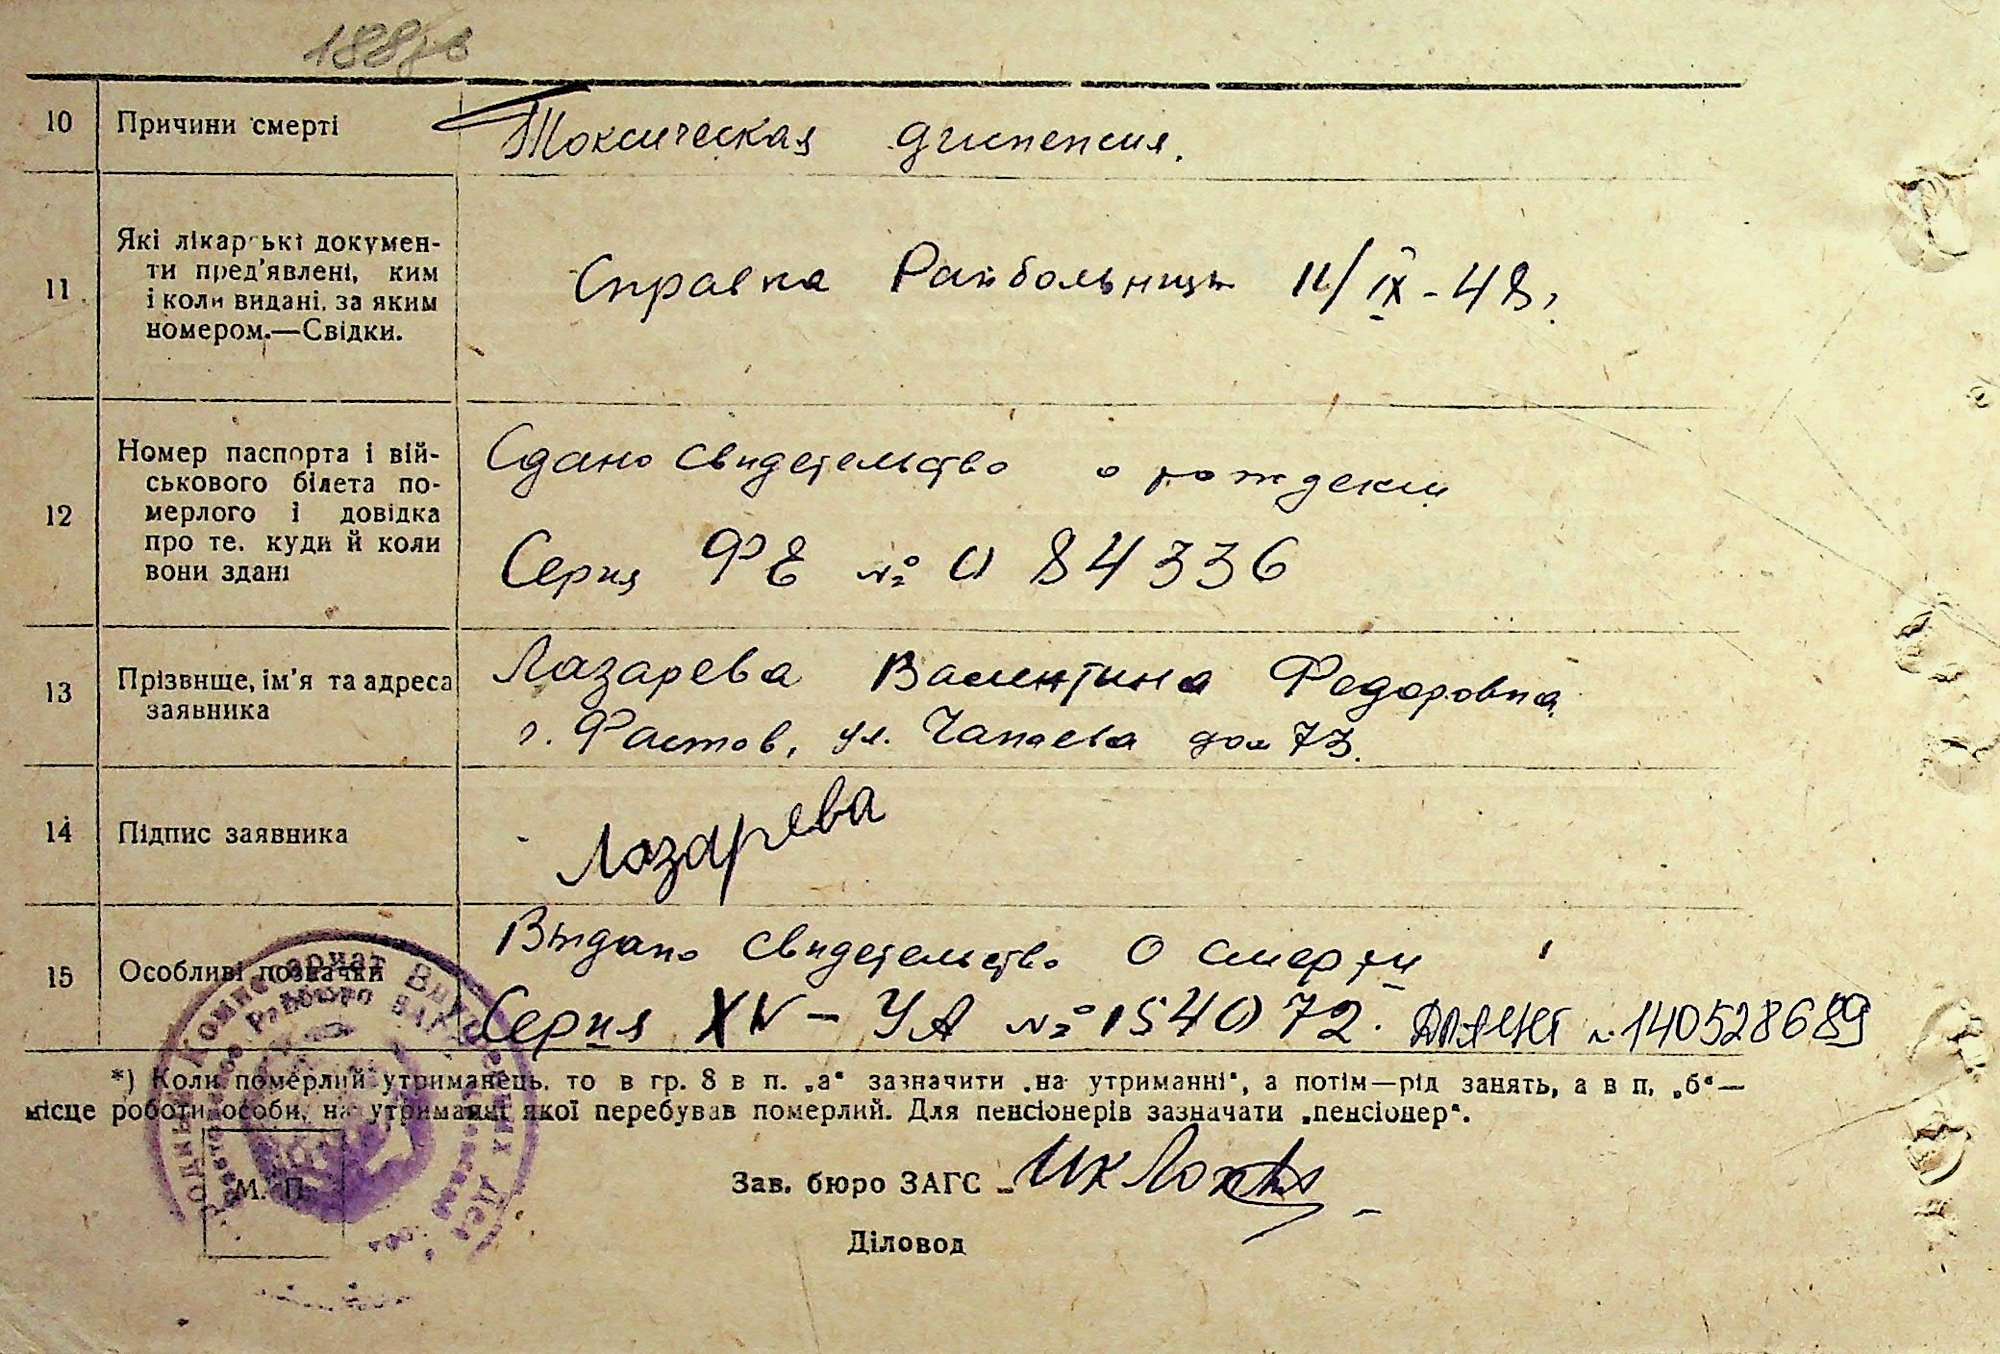 188 зв
10 Причини смерті Токсическая дипепсия.
11 Які лікарські докумен-
ти пред'явлені, ким
і коли видані, за яким
номером.—Свідки.
Справка Райбольницы 11/IX-48г.
12 Номер паспорта і вій-
ськового білета по-
мерлого і довідка
про те, куди й коли
вони здані
Сдано свидетельство о рождении
Серия ФЕ № 084336
13 Прізвище, ім'я та адреса
заявника
Лазарева Валентина Федоровна
г. Фастов, ул. Чапаева дом 73.
14 Підпис заявника Лазарева
15 Особливі позначки Выдано свидетельство о смерти
Серия XV-УА № 154072. № 140528689
*) Коли померлий утриманець, то в гр. 8 в п. „а“ зазначити „на утриманні“, а потім—рід занять, а в п. „б“—
місце роботи особи, на утриманні якої перебував померлий. Для пенсіонерів зазначати „пенсіонер“.
М. П.
Зав. бюро ЗАГС
Діловод